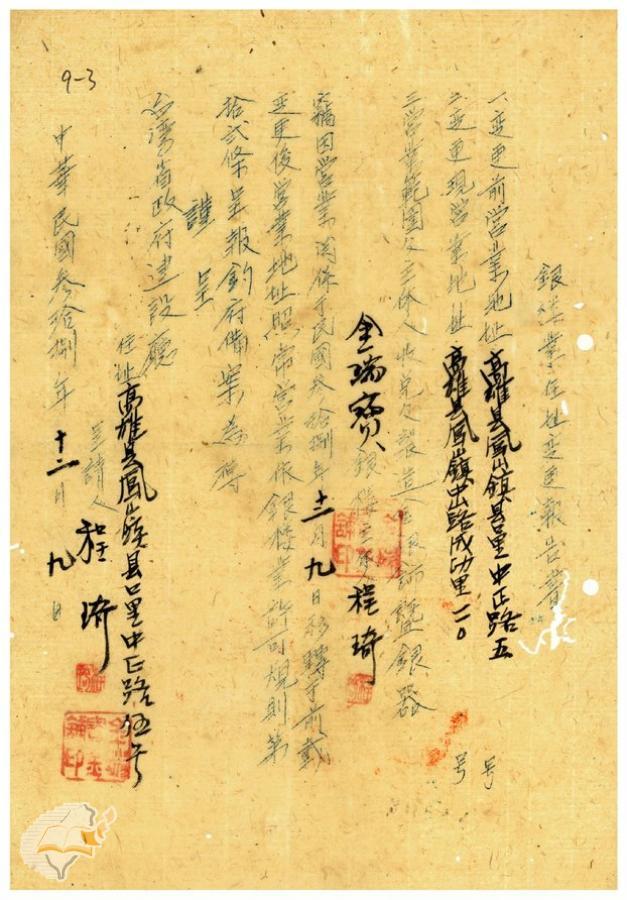 9-3
銀樓業住址变更報告書
一、变更前營業地址 高雄县鳳山鎮县里中正路五号
二、变更現營業地址 高雄县鳳山鎮中山路成功里一一〇号
三、營業範圍及主体人收兑及製造金銀飾暨銀器
金瑞寶銀樓主体人程琦
竊因營業関係于民國叁拾捌年十二月九日移轉于前載
变更後營業地址照常营業依銀楼業許可規則第
拾弍條呈報鈞府備案為禱
謹呈
台湾省政府建設廳
住址高雄县鳳山鎮县口里中正路伍号
呈請人程琦
中華民國叁拾捌年十二月九日